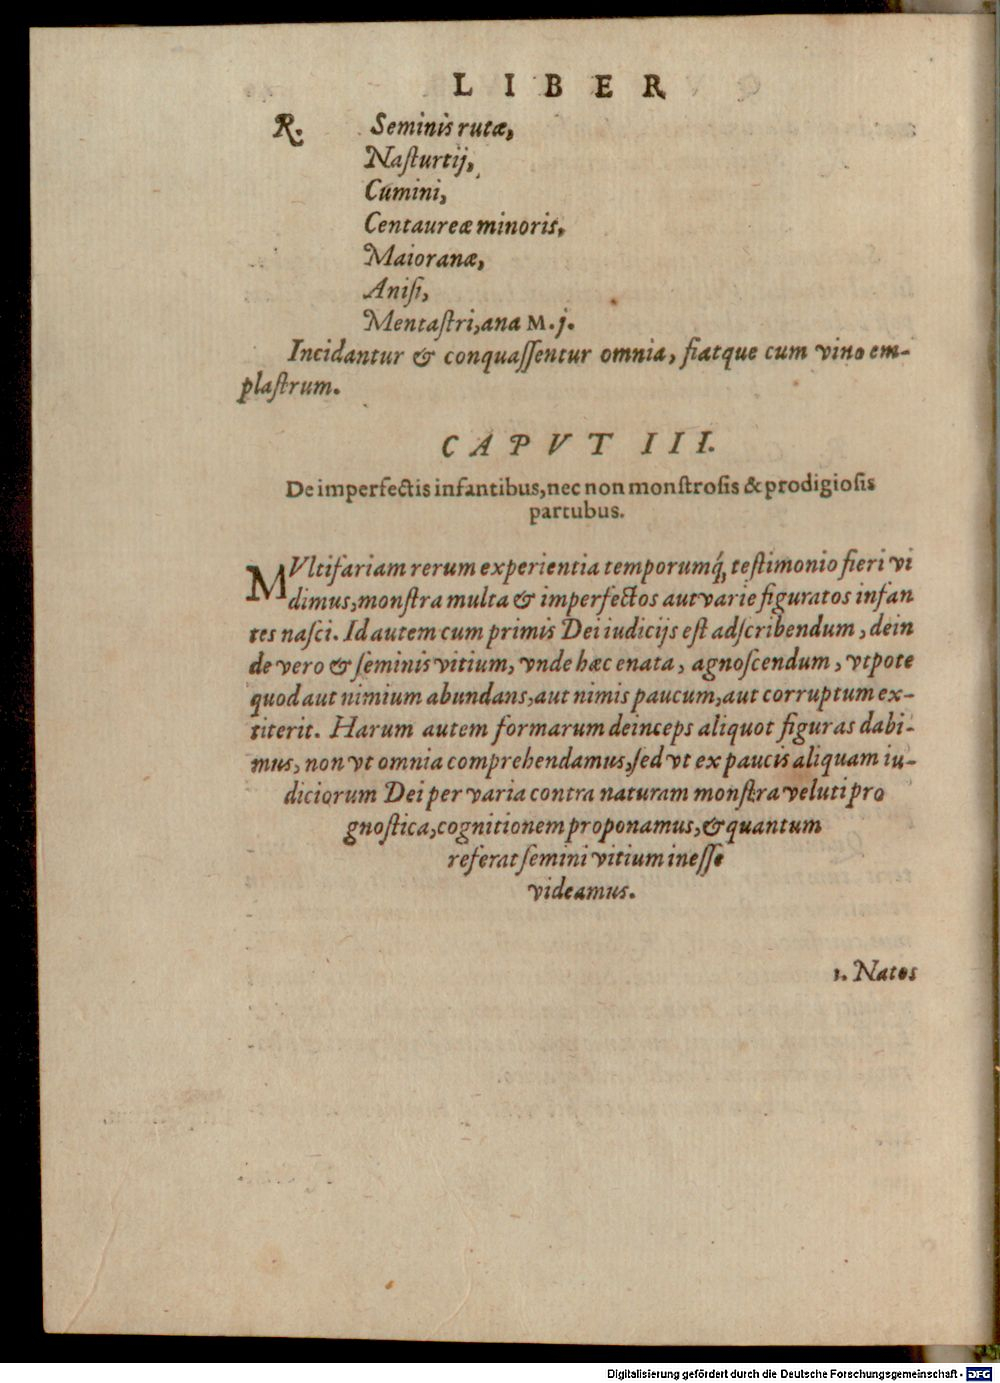 LIBER
R. Seminis rutæ,
Naſturtij,
Cumini,
Centaureæ minoris,
Maioranæ,
Aniſi,
Mentaſtri, ana M. j.
Incidantur & conquaſſentur omnia, fiatque cum vino em-
plaſtrum.
CAPVT III.
De imperfectis infantibus, nec non monſtroſis & prodigioſis
partubus.
MVltifariam rerum experientia temporumq́; teſtimonio fieri vi
dimus, monſtra multa & imperfectos aut varie figuratos infan
tes naſci. Id autem cum primis Dei iudicijs eſt adſcribendum, dein
de vero & ſeminis vitium, vnde hæc enata, agnoſcendum, vtpote
quod aut nimium abundans, aut nimis paucum, aut corruptum ex-
titerit. Harum autem formarum deinceps aliquot figuras dabi-
mus, non vt omnia comprehendamus, ſed vt ex paucis aliquam iu-
diciorum Dei per varia contra naturam monſtra veluti pro
gnoſtica, cognitionem proponamus, & quantum
referat ſemini vitium ineſſe
videamus.
1. Natos
Digitalisierung gefördert durch die Deutsche Forschungsgemeinschaft - DFG